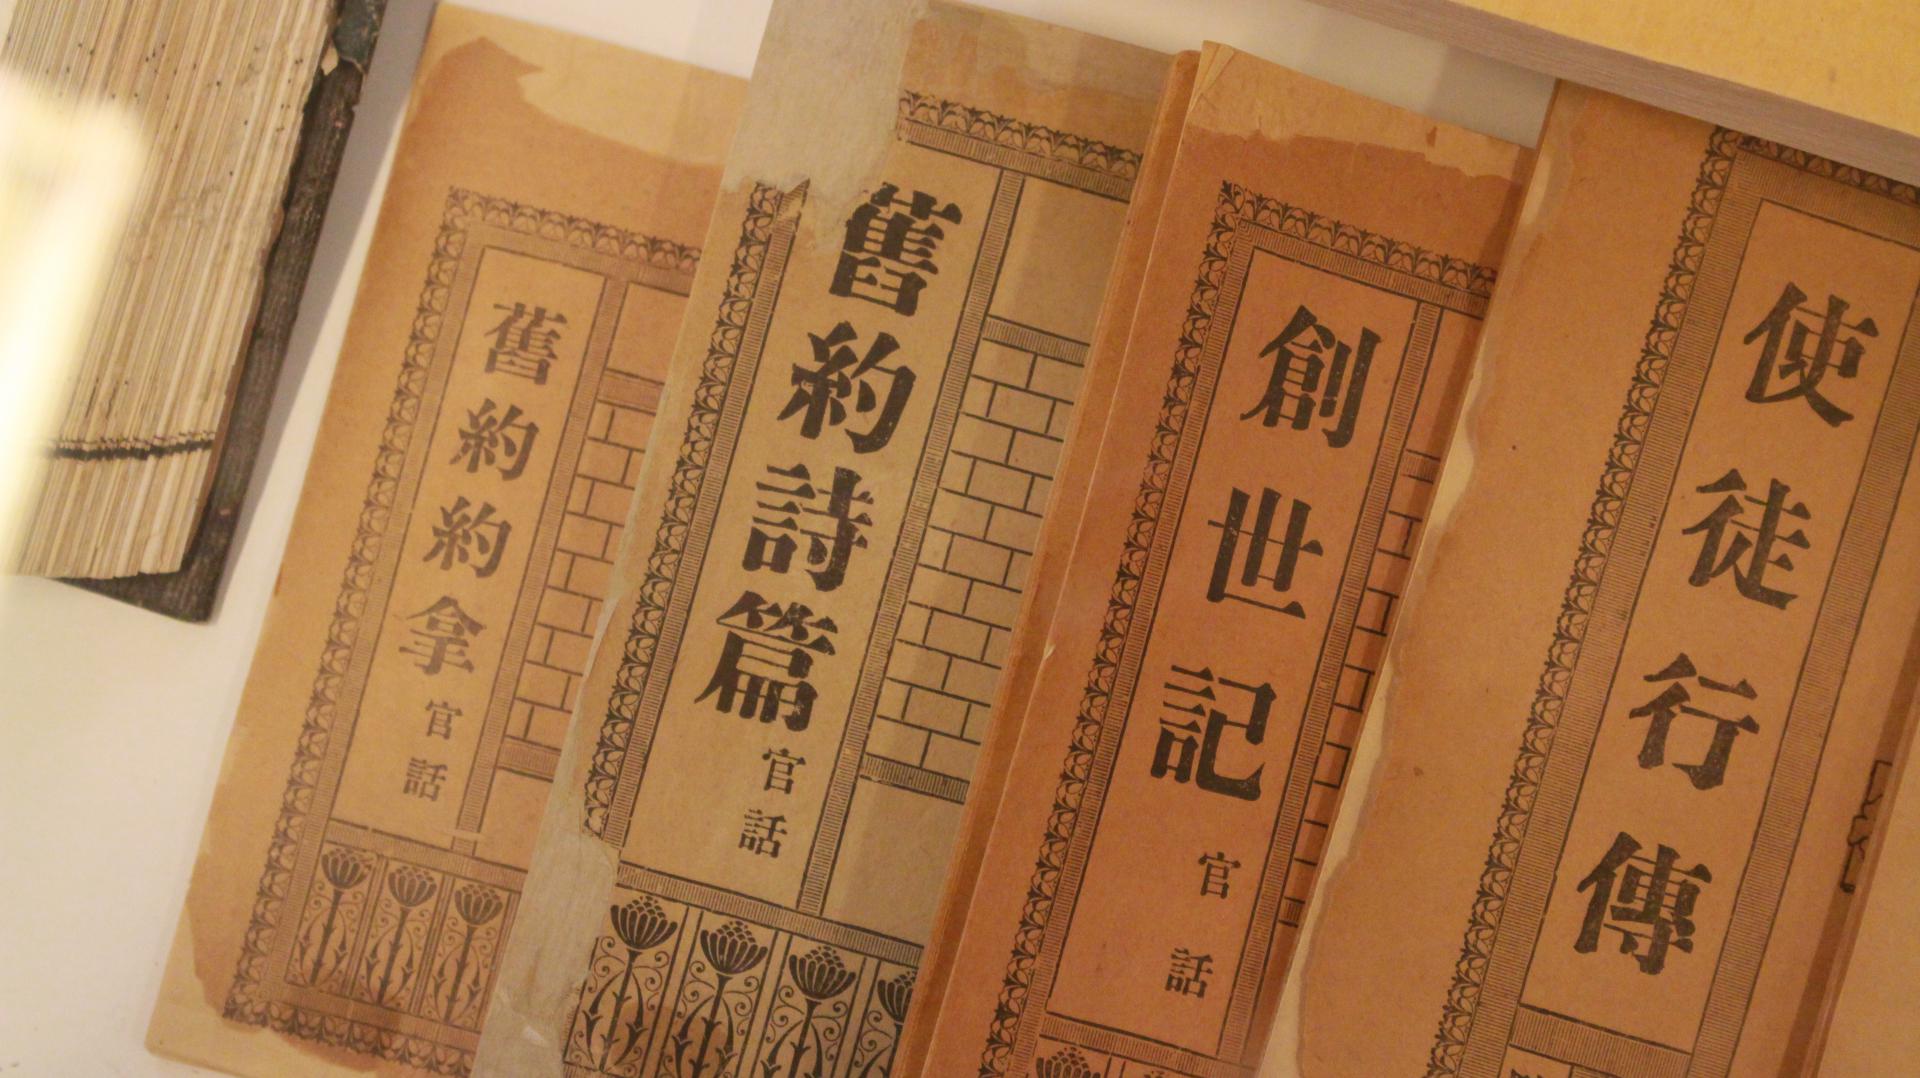 舊約約拿
官話
舊約詩篇
官話
創世記
官話
使徒行傳